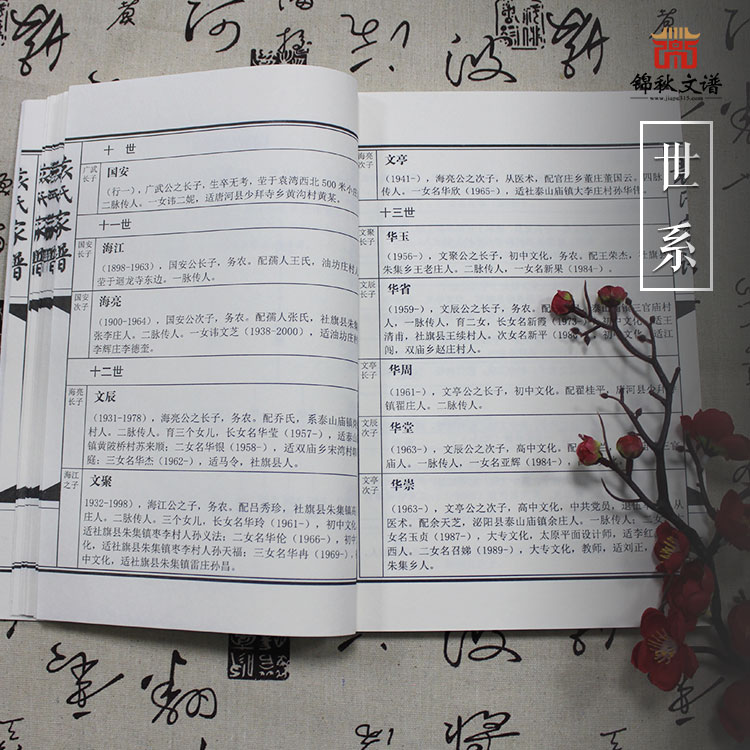 锦秋文谱
www.jiapu315.com
世系
十 世
广武
长子
国安
(行一),广武公之长子,生卒无考,茔于袁湾西北 500 米小
二脉传人。一女讳二妮,适唐河县少拜寺乡黄沟村黄某。
十一世
国安
长子
海江
(1898-1963),国安公长子,务农。配孺人王氏,油坊庄村
茔于迴龙寺东边。一脉传人。
国安
次子
海亮
(1900-1964),国安公次子,务农。配孺人张氏,社旗县朱集
张李庄人。二脉传人。一女讳文芝(1938-2000),适油坊庄
李辉庄李德奎。
十二世
海亮
长子
文辰
(1931-1978),海亮公之长子,务农。配乔氏,系泰山庙镇
村人。二脉传人。育三个女儿,长女名华莹(1957-),适泰山
镇黄陂桥村苏来顺;二女名华恨(1958-),适双庙乡宋湾村
庭;三女名华杰(1962-),适马令,社旗县人。
海江
之子
文聚
1932-1998),海江公之子,务农。配吕秀珍,社旗县朱集镇
庄人。二脉传人。三个女儿,长女名华玲(1961-),初中文化
适社旗县朱集镇枣李村人孙义法;二女名华伦(1966-),初中
化,适社旗县朱集镇枣李村人孙天福;三女名华冉(1969-),
中文化,适社旗县朱集镇雷庄孙昌。
海亮
次子
文亭
(1941-),海亮公之次子,从医术,配官庄乡董庄董国云。四脉
传人。一女名华欣(1965-),适社泰山庙镇大李庄村孙华伟。
十三世
文聚
长子
华玉
(1956-),文聚公之长子,初中文化,务农。配王荣杰,社旗
朱集乡王老庄人。二脉传人,一女名新果(1984-)。
文辰
长子
华省
(1959-),文辰公之长子,
泰山庙镇三官庙村
人,一脉传人,育二女,长女名新霞(1973-),初中文化,适王
清甫,社旗县王续村人。次女名新平(1980-),初中文化,适江
闯,双庙乡赵庄村人。
文亭
长子
华周
(1961-),文亭公之长子,初中文化。配翟桂平,唐河县少拜
镇翟庄人。二脉传人。
文辰
次子
华堂
(1963-),文辰公之次子,高中文化。配
庙人。一脉传人,一女名亚辉(1984-)
文亭
次子
华崇
(1963-),文亭公之次子,高中文化,中共党员,退伍
从
医术。配余天芝,泌阳县泰山庙镇余庄人。一脉传人;二女
女名玉贞(1987-),大专文化,太原平面设计师,适李红
西人。二女名召娣(1989-),大专文化,教师,适刘正,
朱集乡人。